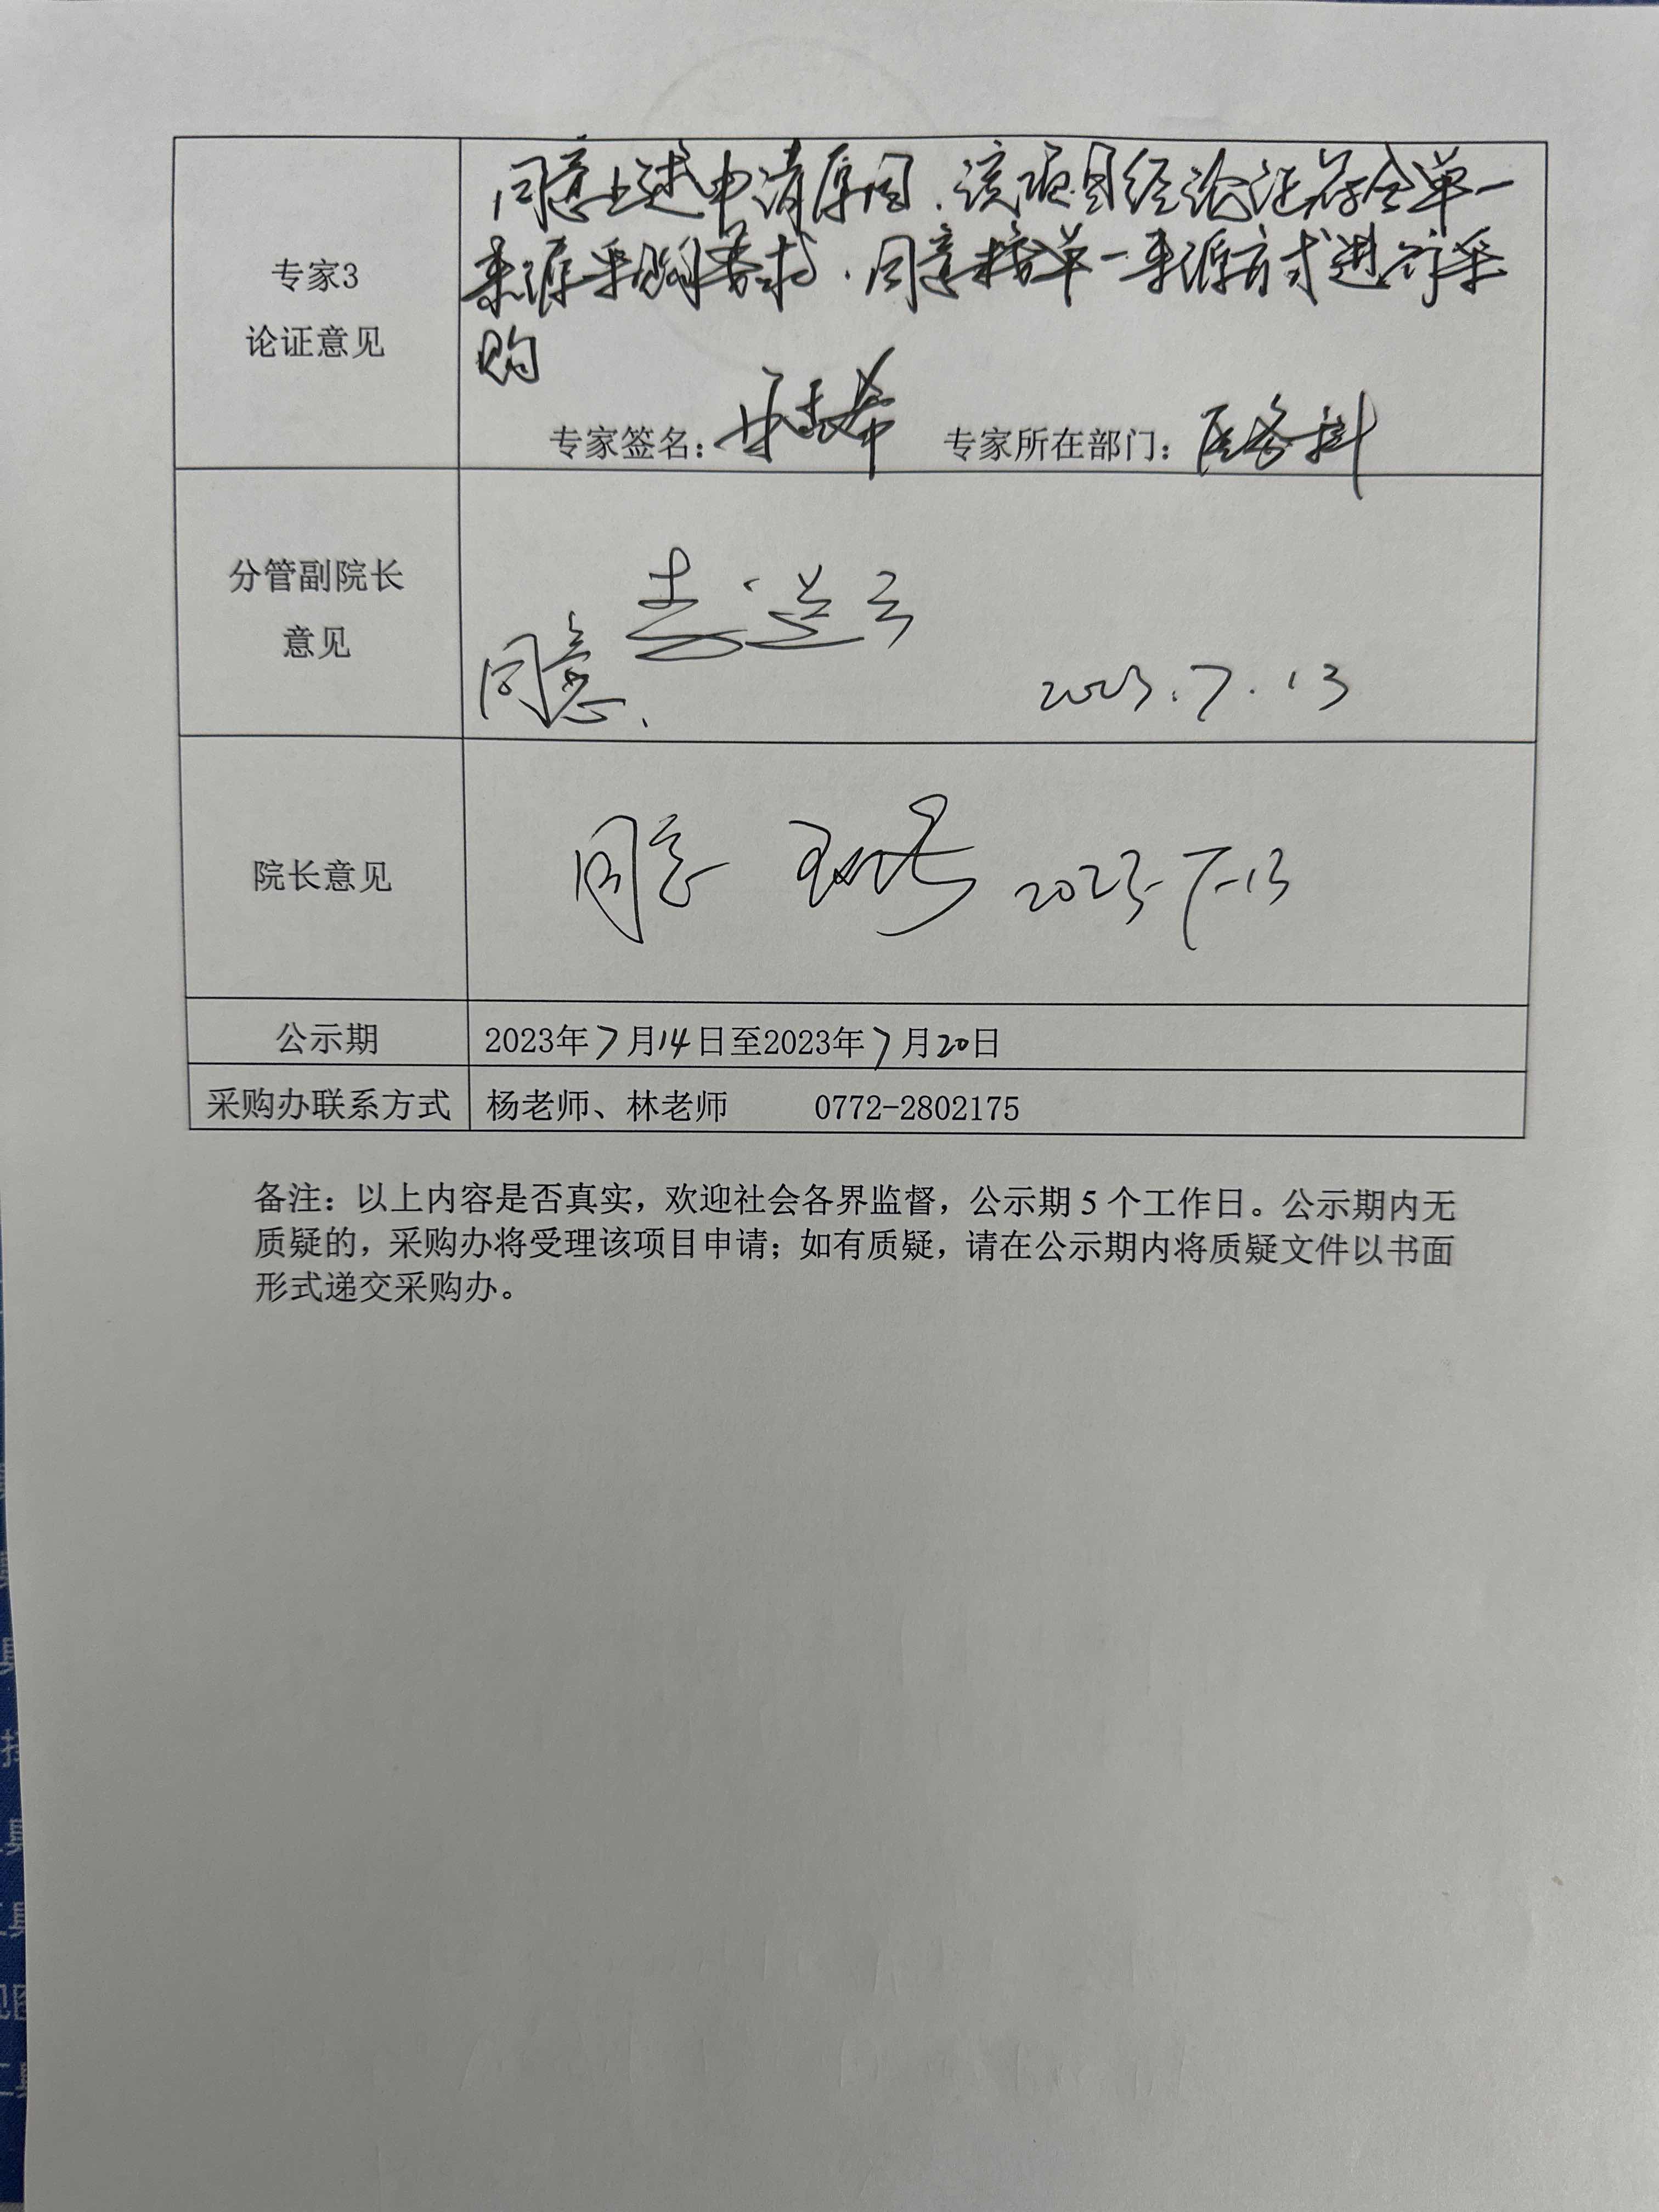 同意上述申请原因.该项目经论证符合单一
来源采购要求.同意按单一来源方式进行采
购
专家3
论证意见
专家签名: 专家所在部门: 医务科
分管副院长
意见
同意、
2023.7.13
院长意见
同意 2023-7-13
公示期 2023年7月14日至2023年7月20日
采购办联系方式 杨老师、林老师 0772-2802175
备注：以上内容是否真实，欢迎社会各界监督，公示期 5 个工作日。公示期内无
质疑的，采购办将受理该项目申请；如有质疑，请在公示期内将质疑文件以书面
形式递交采购办。